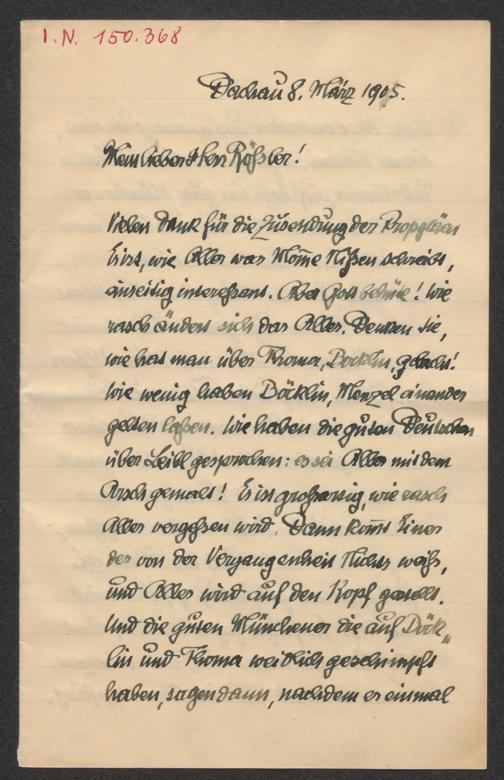 I.N. 150.368
Dachau 8. März 1905.
Mein lieber Herr Rößler!
Vielen Dank für die Zusendung der Propyläen
Es ist, wie Alles was Momme Nißen schreibt,
einseitig interessant. Aber Gott behüte! Wie
rasch ändert sich das Alles. Denken Sie,
wie hat man über Thoma, Böcklin, gelacht!
Wie wenig haben Böcklin, Menzel einander
gelten laßen. Wie haben die guten Deutschen
über Leibl gesprochen: es sei Alles mit dem
Arsch gemalt! Es ist großartig, wie rasch
Alles vergeßen wird. Dann kom̄t Einer
der von der Vergangenheit Nichts weiß,
und Alles wird auf den Kopf gestellt.
Und die guten Münchener die auf Böck„
lin und Thoma weidlich geschimpft
haben, sagen dann, nachdem er einmal